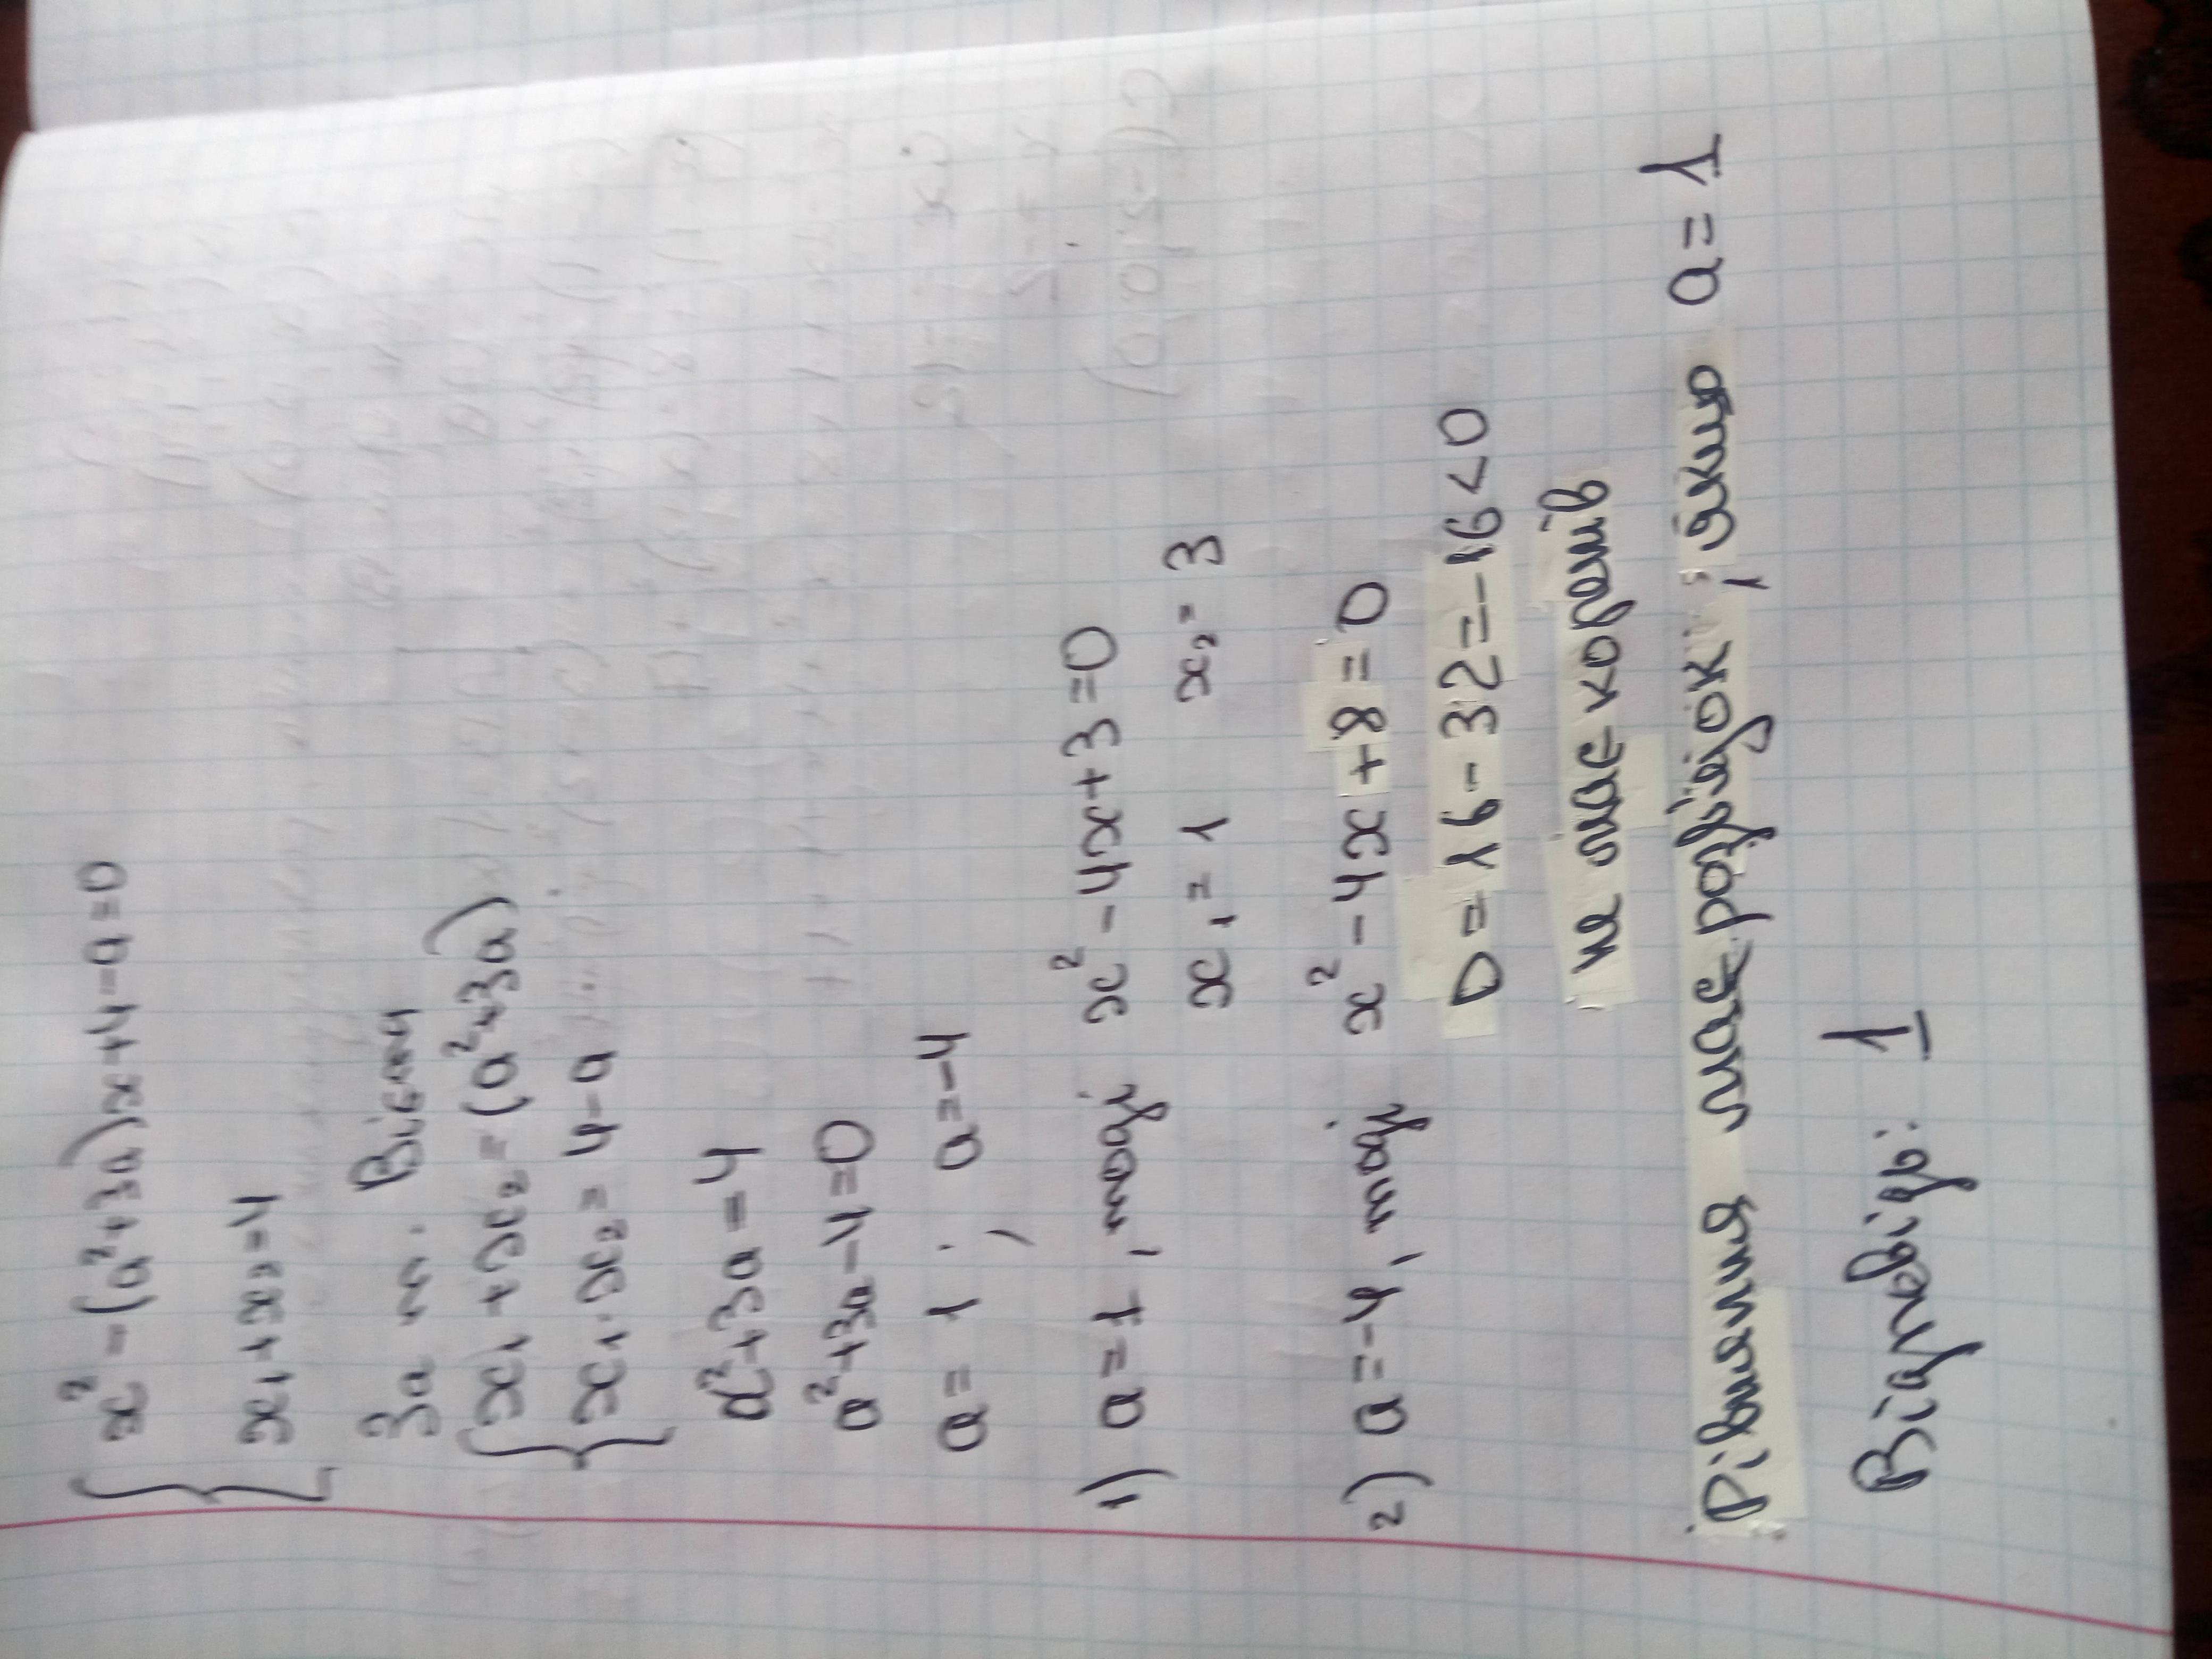 x² - (a² + 3a)x + 4 - a = 0
x₁ + x₂ = 4
За т. Вієта
x₁ + x₂ = (a² + 3a)
x₁ · x₂ = 4 - a
a² + 3a = 4
a² + 3a - 4 = 0
a = 1 ; a = -4
1) a = 1, тоді x² - 4x + 3 = 0
x₁ = 1 x₂ = 3
2) a = -4, тоді x² - 4x + 8 = 0
D = 16 - 32 = -16 < 0
не має коренів
Рівняння має розв'язок, якщо a = 1
Відповідь: 1